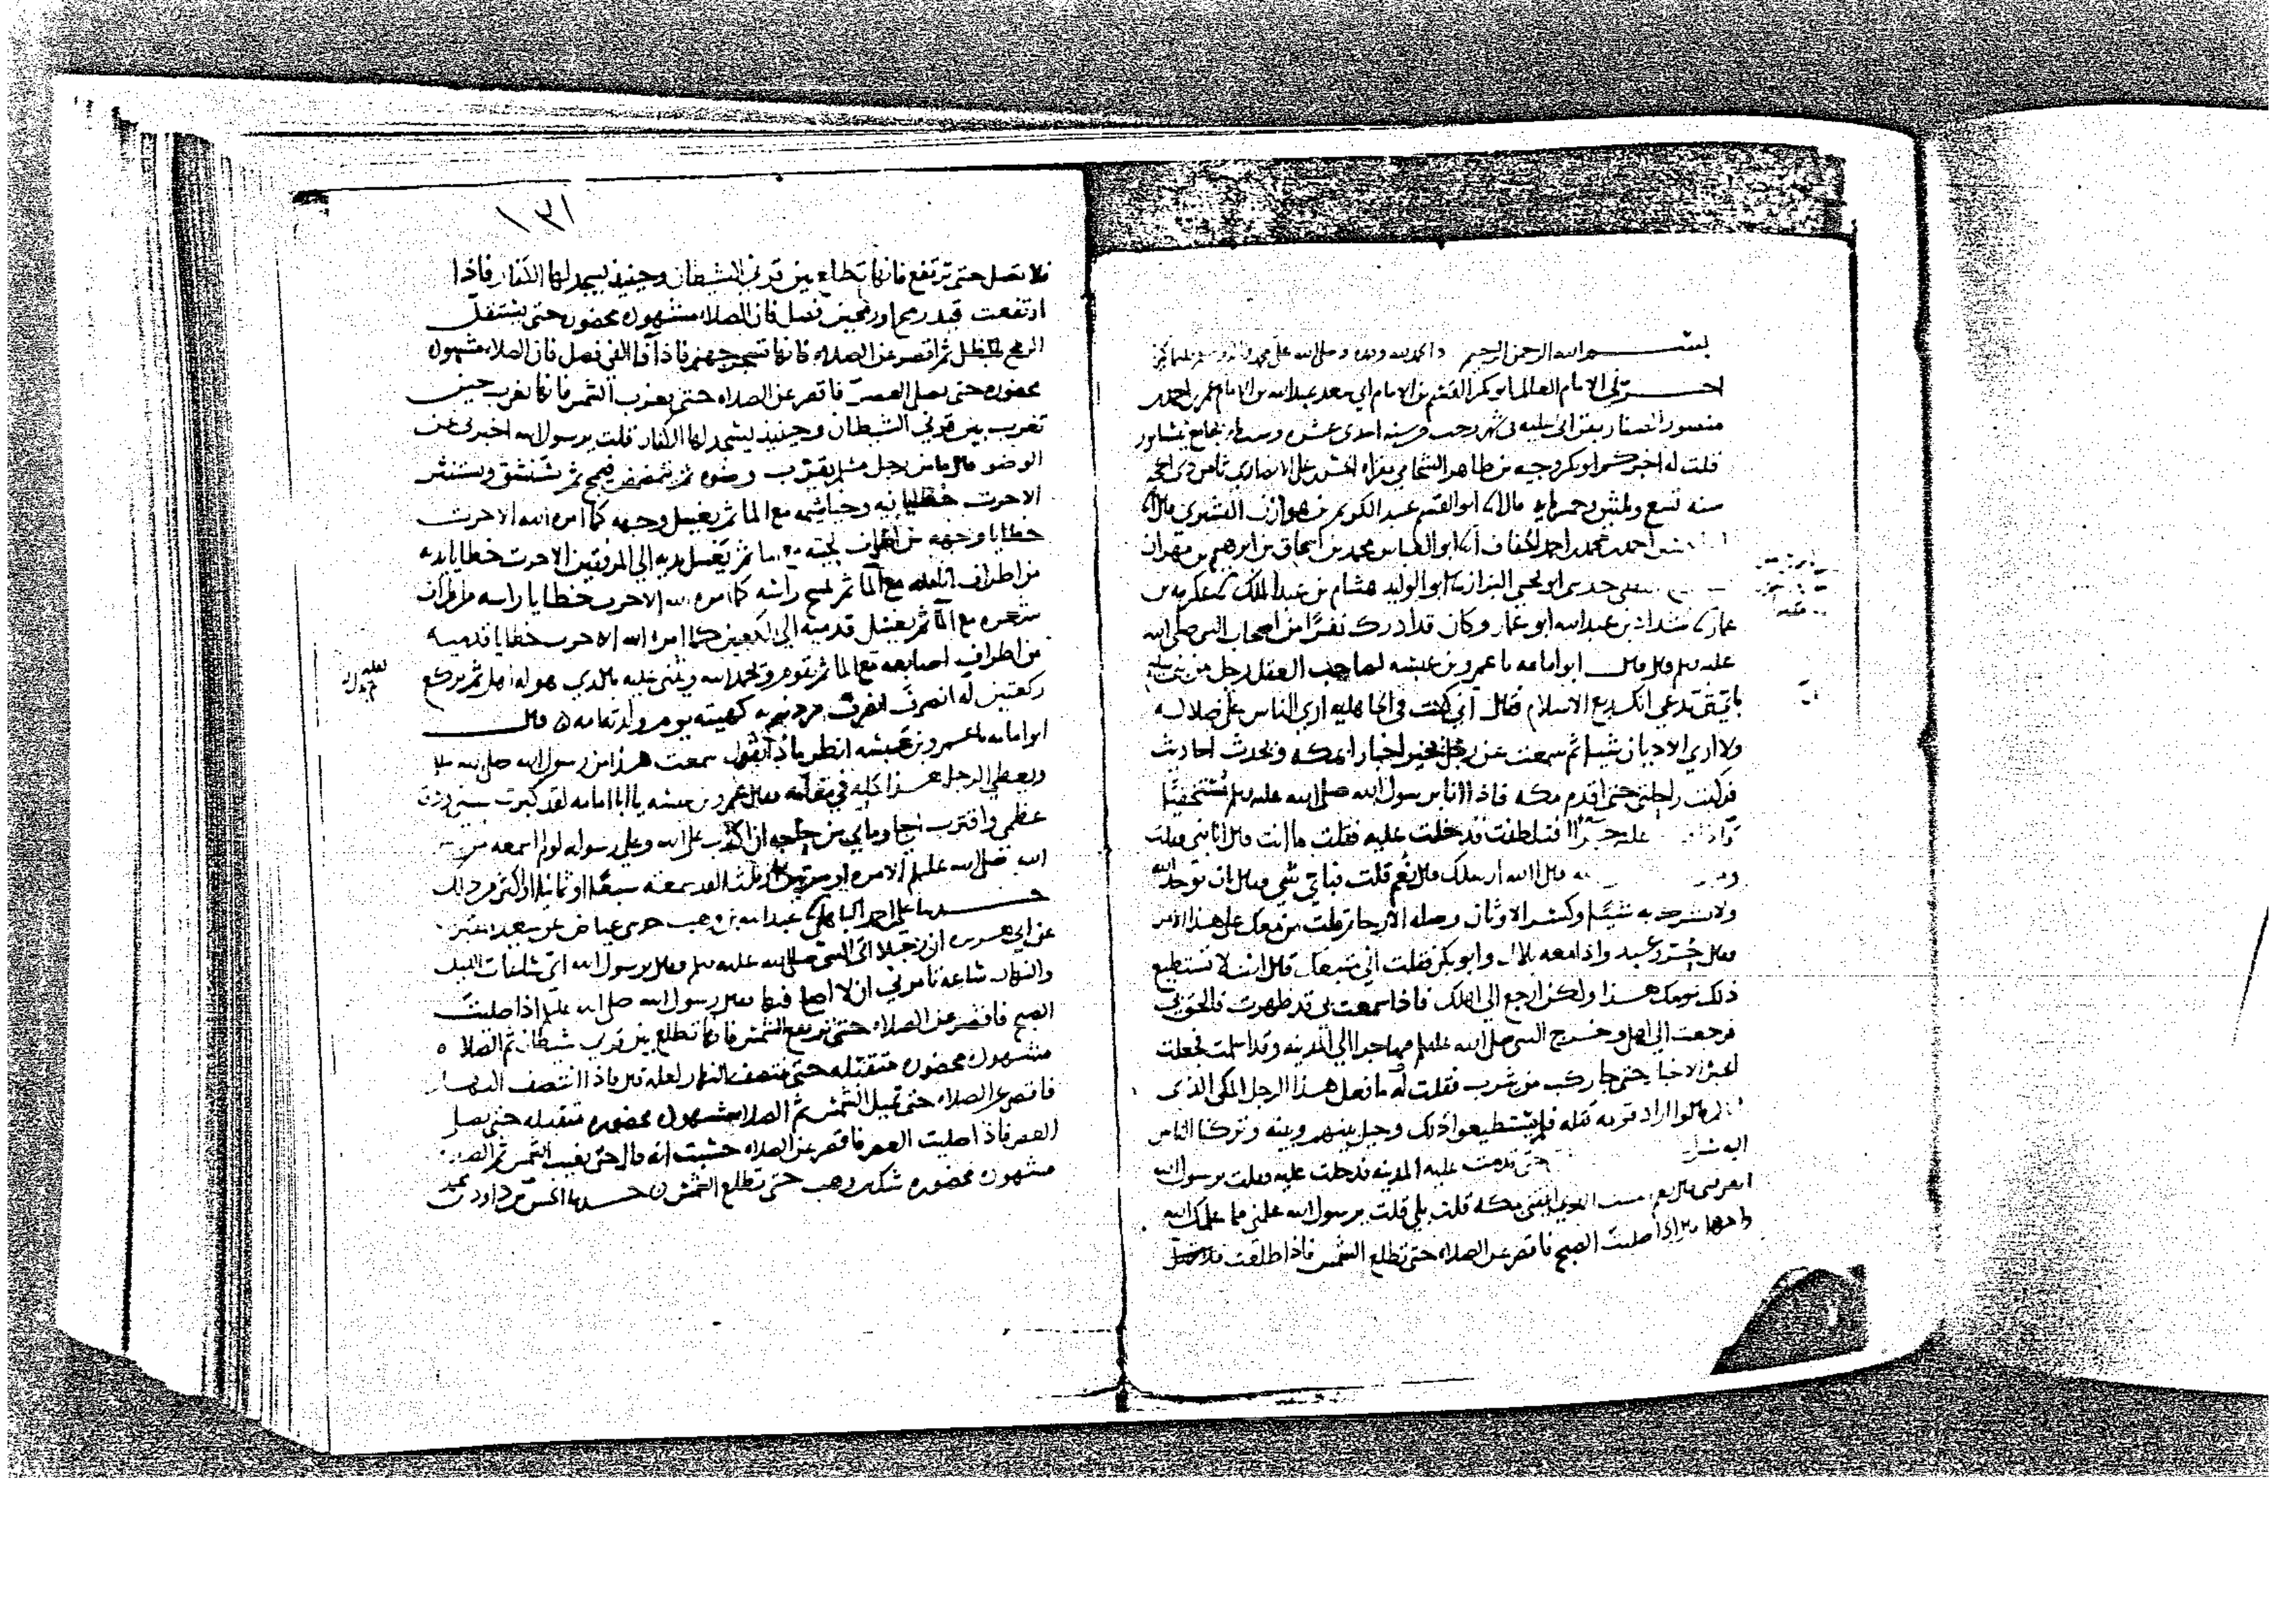 بســـــم الله الرحمن الرحيم والحمد لله وحده وصلى الله على محمد واله وسلم
اخـــبرني الامام العالم ابو بكر القسم بن الامام ابي سعد عبد الله بن الامام عمر بن احمد بن
منصور الصفار بقراتي عليه في شهر رجب من سنه احدى عشره وستمائه بجامع نيسابور
قلت له اخبركم ابو بكر وجيه بن طاهر الشحامي بقراه الحسن بن علي الانصاري ثامن ذي الحجه
سنه تسع وثلثين وخمسمايه قال ابو القسم عبد الكريم بن هوازن القشيري قال
احمد بن محمد بن احمد الخفاف ابو العباس محمد بن اسحاق بن ابرهيم بن مهران
حدثني ابو يحيى البزاز ابو الوليد هشام بن عبد الملك عكرمه بن
عمار شداد بن عبد الله ابو عمار وكان قد ادرك نفرا من اصحاب النبي صلى الله
عليه وسلم قال قال ابو امامه يا عمرو بن عبسه لصاحب العقل رجل من بني سليم
باي شي تدعي انك ربع الاسلام فقال اني كنت في الجاهليه ارى الناس على ضلاله
ولا ارى الاديان شيا ثم سمعت عن رجل يخبر اخبارا بمكه ويحدث احاديث
فركبت راحلتي حتى اقدم مكه فاذا انا برسول الله صلى الله عليه وسلم مستخفيا
واذا عليه جرآا فتلطفت فدخلت عليه فقلت ما انت قال انا نبي فقلت
وما قال الله ارسلك قال نعم قلت فباي شي قال ان توحد الله
ولا تشرك به شيا وكسر الاوثان وصله الارحام قلت من معك على هذا الامر
فقال حر وعبد واذا معه بلال وابو بكر فقلت اني متبعك قال انك لا تستطيع
ذلك يومك هذا ولكن ارجع الى اهلك فاذا سمعت بي قد ظهرت فالحق بي
فرجعت الى اهلي وخرج النبي صلى الله عليه وسلم مهاجرا الى المدينه وقد اسلمت فجعلت
اتخبر الاخبار حتى جا ركب من يثرب فقلت له ما فعل هذا الرجل المكي الذي
قالوا اراد قومه قتله فلم يستطيعوا ذلك وحيل بينهم وبينه وتركنا الناس
اليه سراعا حتى قدمت عليه المدينه فدخلت عليه فقلت يرسول الله
اتعرفني قال نعم الست الذي اتيتني بمكه قلت بلى قلت يرسول الله علمني مما علمك الله
واجهل قال اذا صليت الصبح فاقصر عن الصلاه حتى تطلع الشمس فاذا طلعت فلا تصل
١٣١
فلا تصل حتى ترتفع فانها تطلع بين قرني الشيطان وحينيذ يسجد لها الكفار فاذا
ارتفعت قيد رمح او رمحين فصل فان الصلاه مشهوده محضوره حتى يستقل
الرمح بالظل ثم اقصر عن الصلاه فانها تسجر جهنم فاذا فا الفي فصل فان الصلاه مشهوده
محضوره حتى تصلي العصر فاقصر عن الصلاه حتى تغرب الشمس فانها تغرب حين
تغرب بين قرني الشيطان وحينيذ يسجد لها الكفار قلت يرسول الله اخبرني عن
الوضو قال ما من رجل مسلم يقترب وضوه ثم يتمضمض فيمج ثم يستنشق ويستنثر
الا خرت خطايا فيه وخياشيمه مع الما ثم يغسل وجهه كما امره الله الا خرت
خطايا وجهه من اطراف لحيته مع الما ثم يغسل يديه الى المرفقين الا خرت خطايا يديه
من اطراف انامله مع الما ثم يمسح راسه كما امره الله الا خرت خطايا راسه من اطراف
شعره مع الما ثم يغسل قدميه الى الكعبين كما امره الله الا خرت خطايا قدميه
من اطراف اصابعه مع الما ثم يقوم ويحمد الله ويثني عليه بالذي هو له اهل ثم يركع
ركعتين له انصرف انصرف من ذنوبه كهيئته يوم ولدته امه قال
ابو امامه يا عمرو بن عبسه انظر ماذا تقول سمعت هذا من رسول الله صلى الله عليه
ويعطي الرجل هذا كله في مقامه فقال عمرو بن عبسه يا ابا امامه لقد كبرت سني ورق
عظمي واقترب اجلي وما بي من حاجه ان اكذب على الله وعلى رسوله لو لم اسمعه من رسول
الله صلى الله عليه وسلم الا مره او مرتين او ثلثا لقد سمعته سبعا او ثمانيا او اكثر من ذلك
حـــدثنا علي بن احمد الباهلي عبد الله بن وهب حدثني عياض عن سعيد المقبري
عن ابي هريره ان رجلا اتى النبي صلى الله عليه وسلم فقال يرسول الله اي ساعات الليل
والنهار ساعه تامرني ان لا اصلي فيها فقال رسول الله صلى الله عليه اذا صليت
الصبح فاقصر عن الصلاه حتى ترتفع الشمس فانها تطلع بين قرني شيطان ثم الصلاه
مشهوده محضوره متقبله حتى ينتصف النهار فاذا انتصف النهار
فاقصر عن الصلاه حتى تميل الشمس ثم الصلاه مشهوده محضوره متقبله حتى تصلي
العصر فاذا صليت العصر فاقصر عن الصلاه حسبت انه قال حتى تغيب الشمس ثم الصلاه
مشهوده محضوره شك بن وهب حتى تطلع الشمس حـــدثنا الحسن بن داود بن محمد